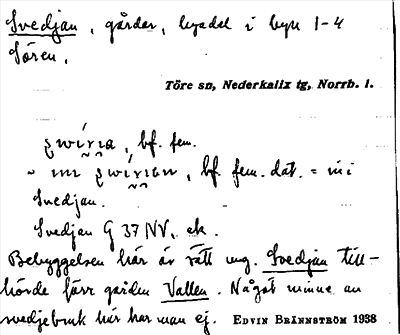 Svedjan, gårdar, bydel i byn 1-4
Sören.
Töre sn, Nederkalix tg, Norrb. l.
, bf. fem.
, bf. fem. dat. = in i
Svedjan.
Svedjan G 37 NV, ek.
Bebyggelsen här är rätt ung. Svedjan till-
hörde förr gården Vallen. Något minne av
svedjebruk här har man ej. EDVIN BRÄNNSTRÖM 1938